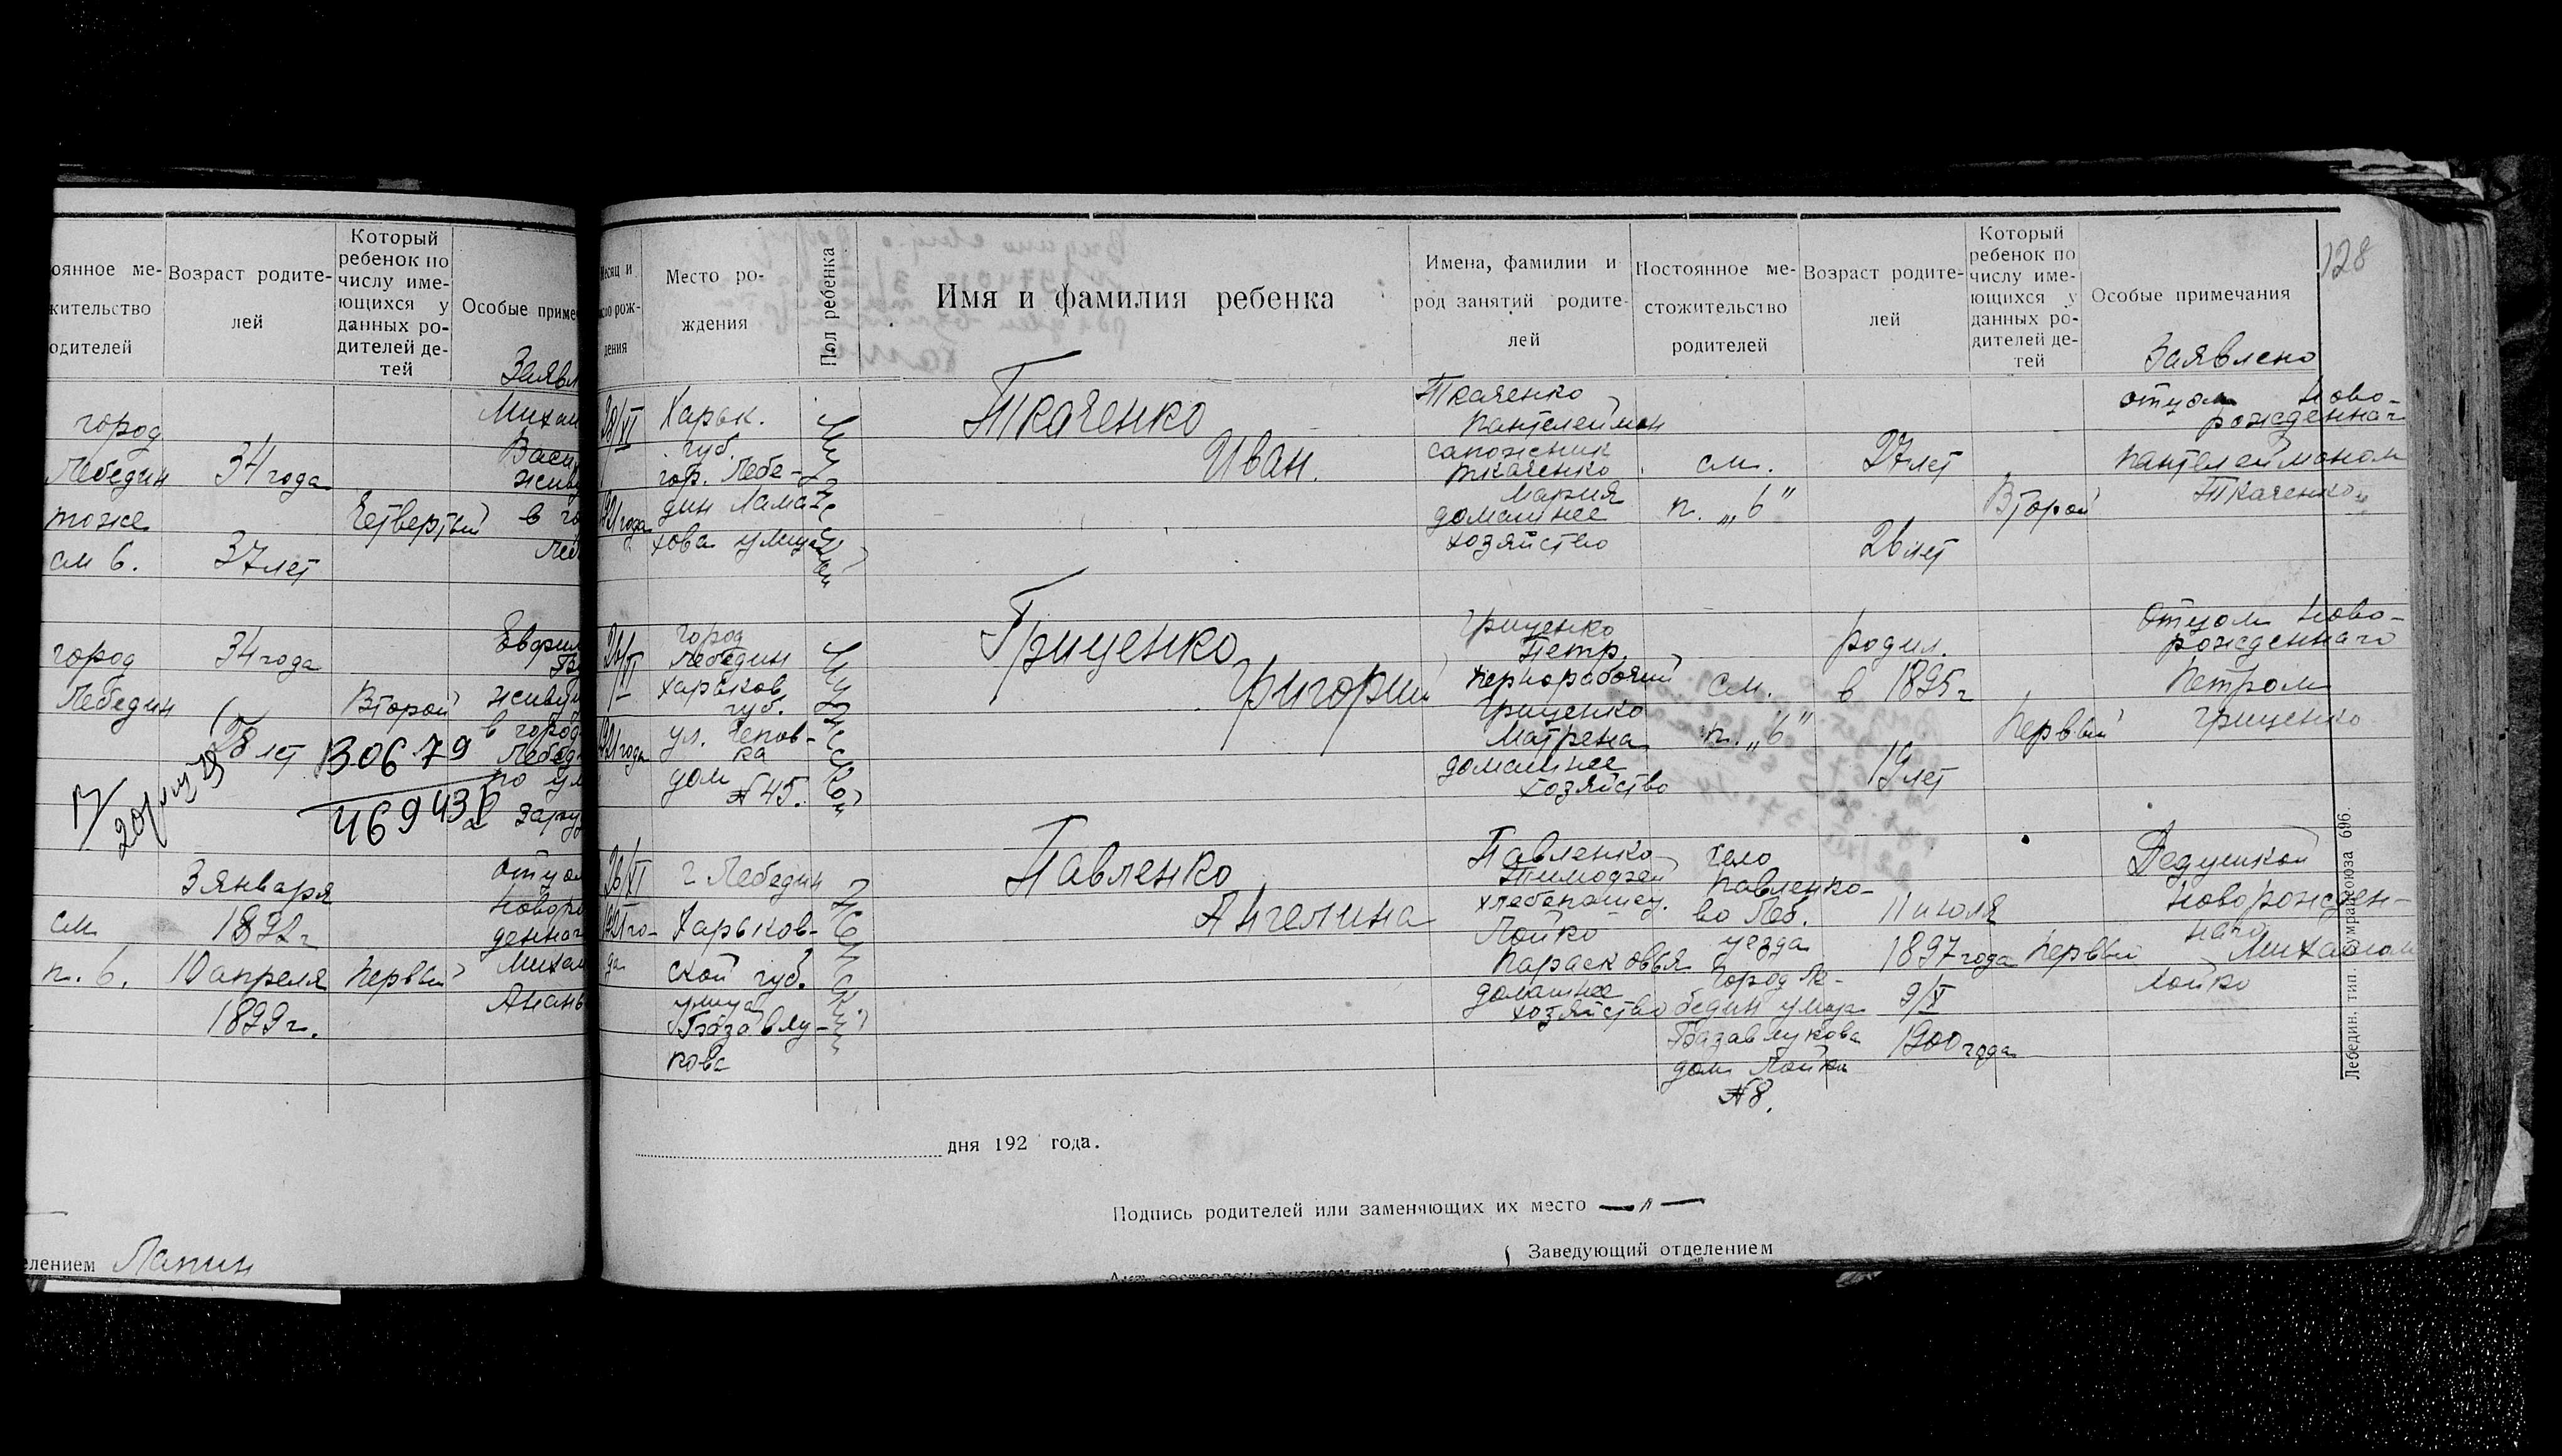 оянное ме-
жительство
одителей
Возраст родите-
лей
Который
ребенок по
числу име-
ющихся у
данных ро-
дителей де-
тей
Особые приме
Заявл
город
Лебедин
тоже
см 6.
34 года
37 лет
Четвертый
Михаи
Васи
живу
в го
Леб
город
Лебедин
34 года
28 лет
Второй
живу
в город
Лебед
по ул
130679
469431
см
п. 6.
3 января
1892 г
10 апреля
1899 г.
Первый
отцом
новоро
денног
Михаи
Анань
елением Лапин
Месяц и
число рож-
дения
Место ро-
ждения
Пол ребенка
Имя и фамилия ребенка
Имена, фамилии и
род занятий родите-
лей
Постоянное ме-
стожительство
родителей
Возраст родите-
лей
Который
ребенок по
числу име-
ющихся у
данных ро-
дителей де-
тей
Особые примечания
Заявлено
128
28/XI
1921 года
Харьк.
губ.
гор. Лебе-
дин
улица
Мужской
Ткаченко
Иван.
Ткаченко
Пантелеймон
сапожник
Ткаченко
Мария
домашнее
хозяйство
см.
п. „6"
27 лет
26 лет
Второй
отцом ново-
рожденнаг
Пантелеймоном
Ткаченко
1921 года
город
Лебедин
Харьков
губ.
ул.
дом
№ 45.
Мужской
Гриценко
Григорий
Гриценко
Петр.
чернорабочий
Гриценко
Матрена
домашнее
хозяйство
см.
п. „6"
родил.
в 1895 г
19 лет
Первый
Отцом ново-
рожденнаго
Петром
Гриценко
26/XI
1921 го-
да
г Лебедин
Харьков-
ской губ.
улица
Базавлу-
кова
Женский
Павленко
Ангелина
Павленко
Тимофей
хлебопашец.
Лойко
Парасковья
домашнее
хозяйство
село
Павленко-
во Леб.
уезда
город Ле-
бедин улица
Базавлукова
дом Лойки
№ 8.
11 июля
1897 года
9/X
1900 года
Первый
Дедушкой
новорожден-
наго Михаилом
Лойко
Лебедин. тип. Бумпрафсоюза 696.
дня 192 года.
Подпись родителей или заменяющих их место
Заведующий отделением